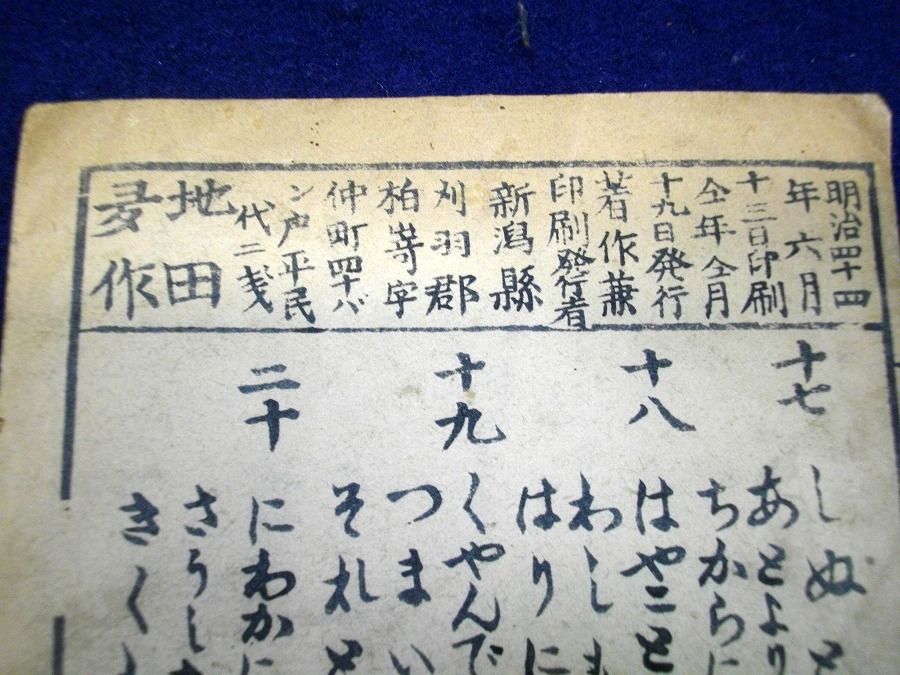 明治四十四
年六月
十三日印刷
仝年仝月
十九日発行
著作兼
印刷発行者
新潟縣
刈羽郡
柏嵜字
仲町四十バ
ン戸平民
代二戋
地田
作
十七
しぬと
あとより
ちからに
十八
はやこと
わしも
はりに
十九
くやんで
つまい
それと
二十
にわかに
さうし
きく